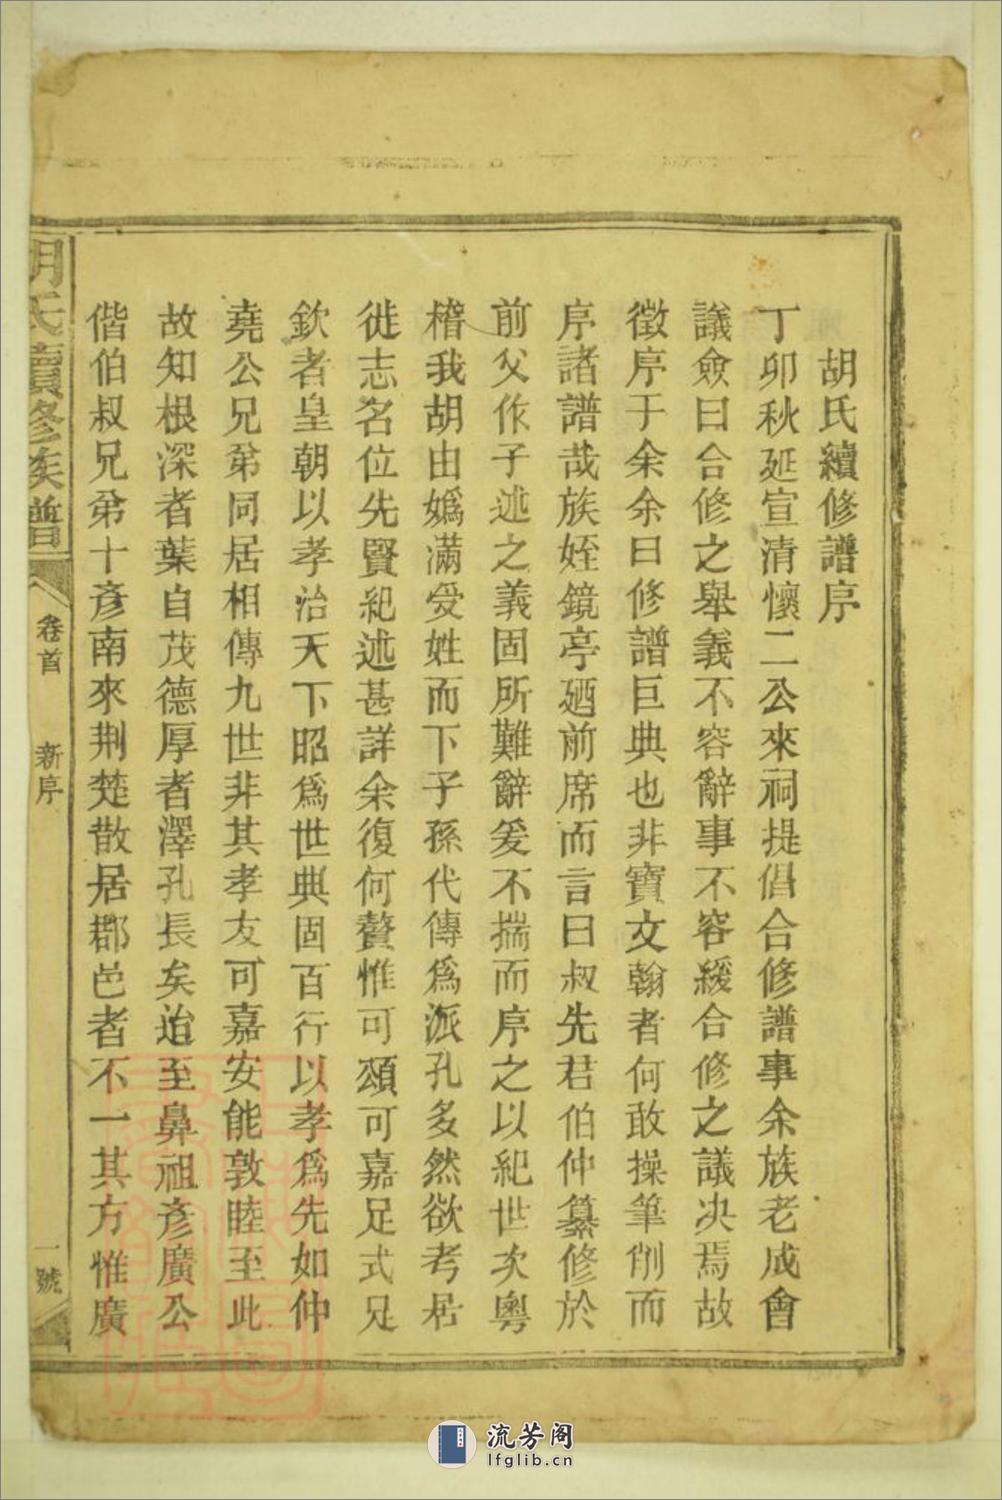 胡氏續修譜序
丁卯秋延宣清懷二公來祠提倡合修譜事余族老成會
議僉曰合修之舉義不容辭事不容緩合修之議決焉故
徵序于余余曰修譜巨典也非寶文翰者何敢操筆削而
序諸譜哉族姪鏡亭廼前席而言曰叔先君伯仲纂修於
前父作子述之義固所難辭爰不揣而序之以紀世次粵
稽我胡由嬀滿受姓而下子孫代傳為派孔多然欲考居
徙志名位先賢紀述甚詳余復何贅惟可頌可嘉足式足
欽者皇朝以孝治天下昭爲世典固百行以孝爲先如仲
堯公兄弟同居相傳九世非其孝友可嘉安能敦睦至此
故知根深者葉自茂德厚者澤孔長矣迨至鼻祖彥廣公
偕伯叔兄弟十彥南來荆楚散居郡邑者不一其方惟廣
胡氏續修族譜
卷首
新序
一號
流芳阁
lfglib.cn